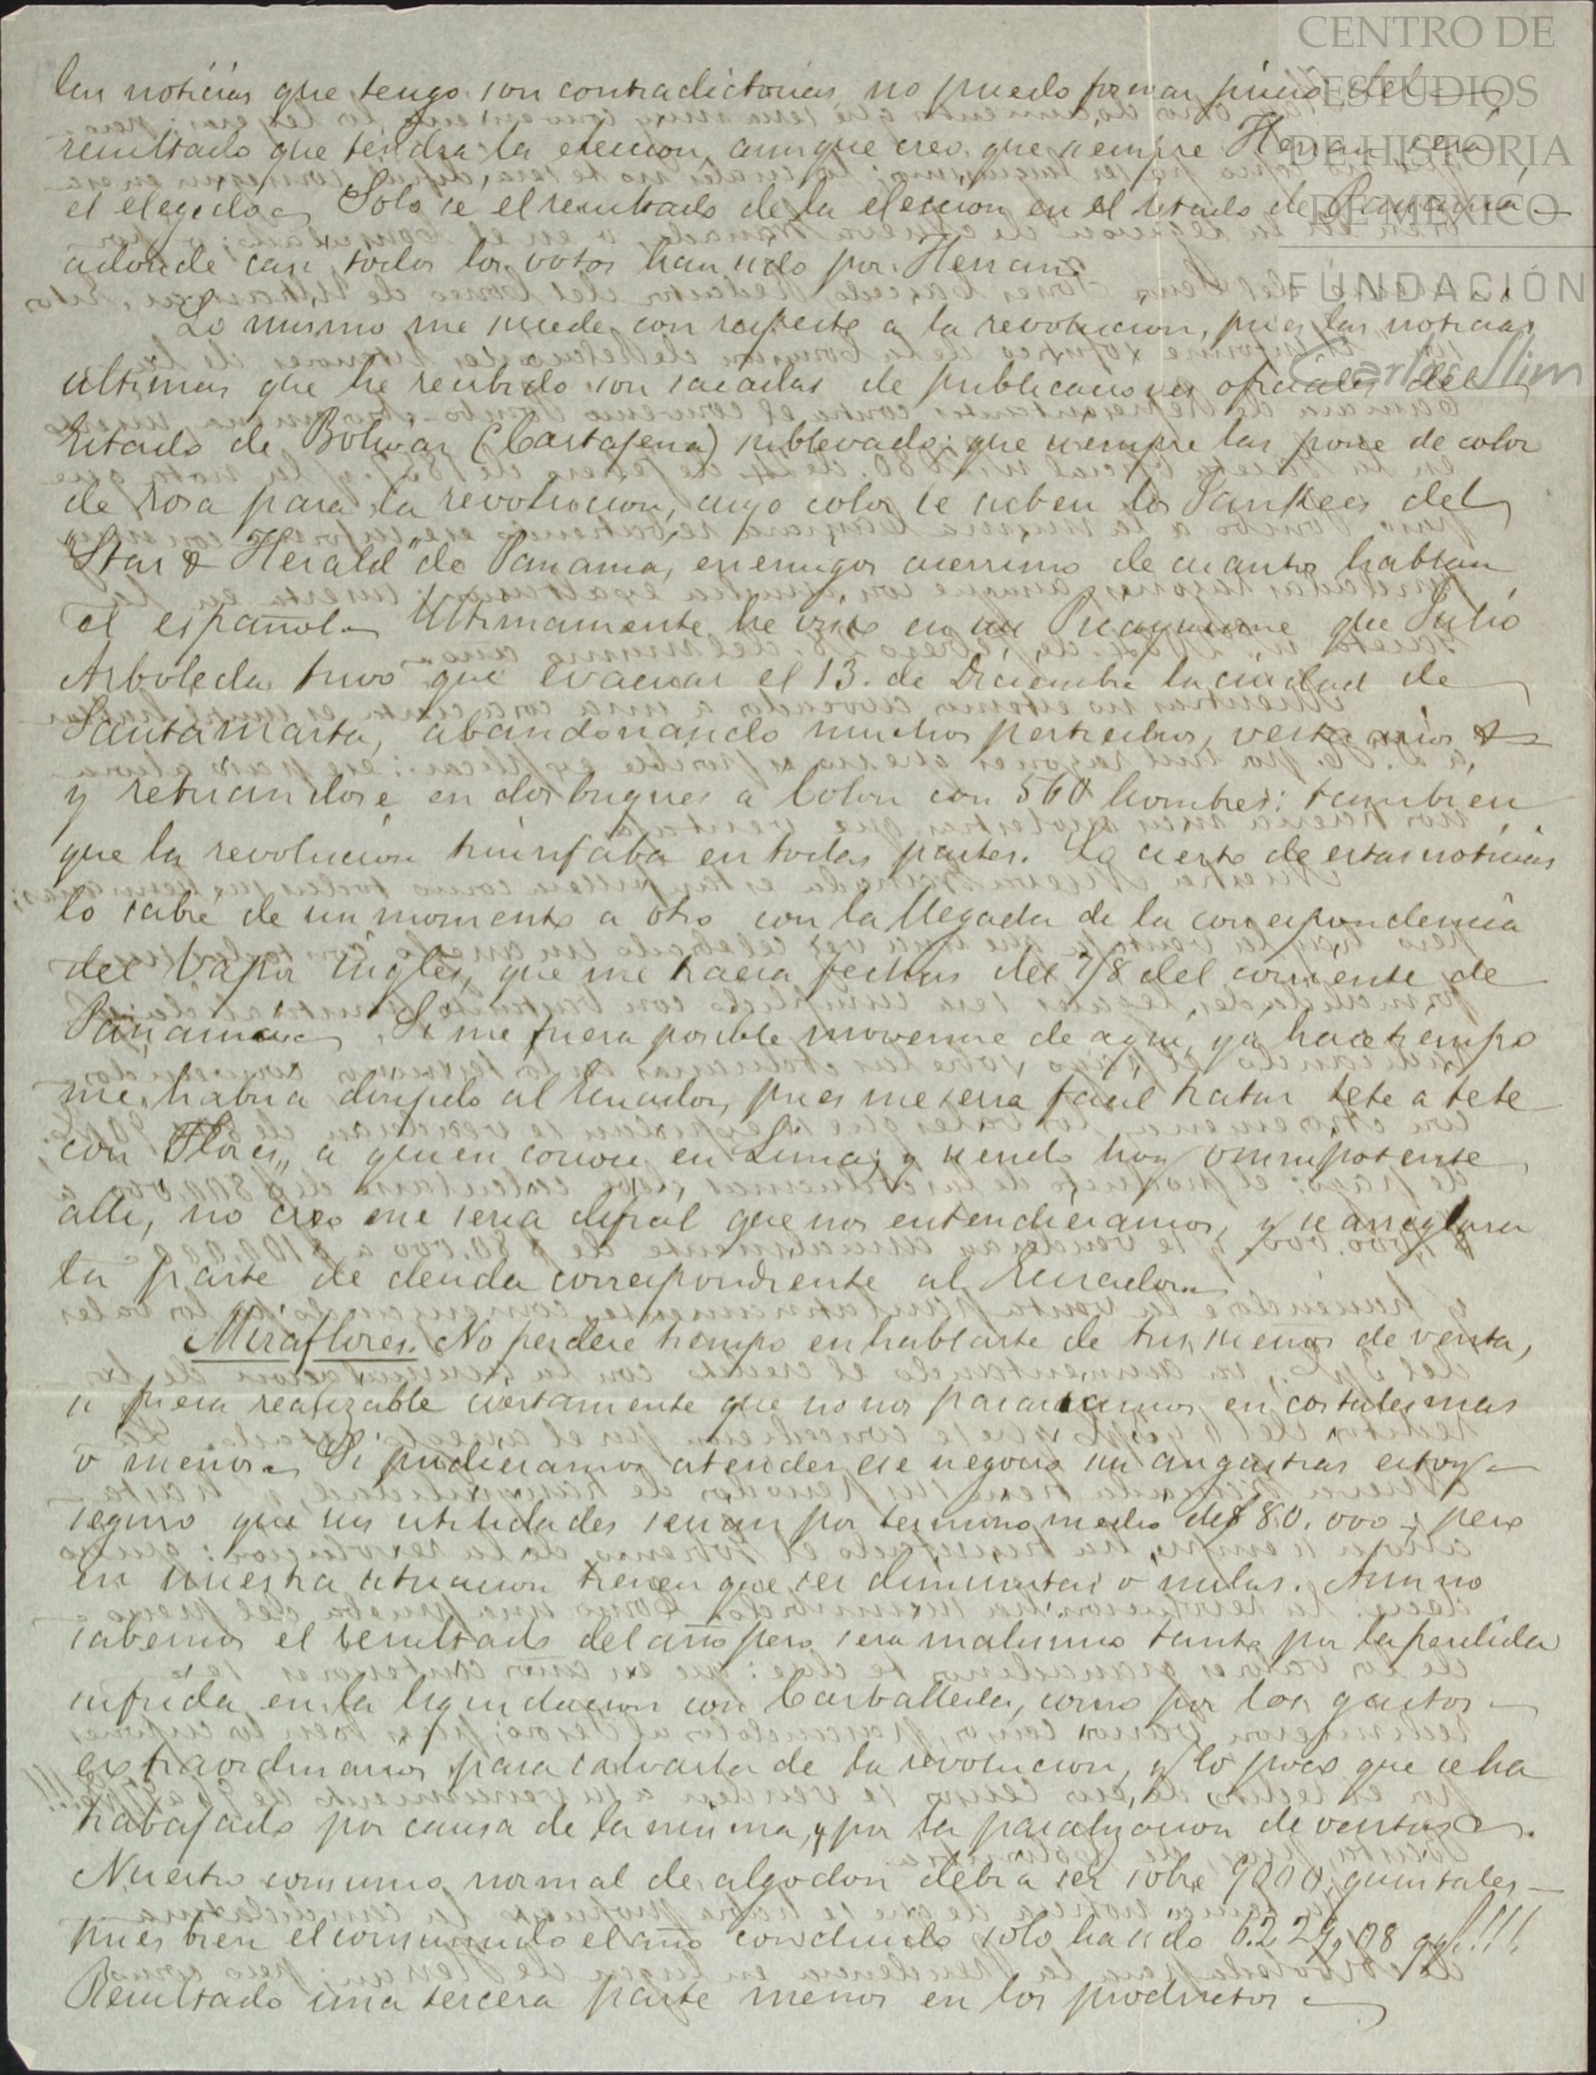 CENTRO DE
ESTUDIOS
DE HISTORIA
DE MEXICO
FUNDACIÓN
Carlos Slim
las noticias que tengo son contradictorias no puedo formar juicio del
resultado que tendra la eleccion, aunque creo que siempre Herran sera
el elegido. Solo se el resultado de la eleccion en el Estado de Panamá
adonde casi todos los votos han sido por Herran.
Lo mismo me sucede con respecto a la revolucion, pues las noticias
ultimas que he recibido son sacadas de publicaciones oficiales del
Estado de Bolivar (Cartajena) sublevado; que siempre las pone de color
de rosa para la revolucion, cuyo color se beben los Yankees del
"Star & Herald" de Panama, enemigos acerrimos de cuantos hablan
el español. Ultimamente he visto en un Picayune que Julio
Arboleda tuvo que evacuar el 13. de Diciembre la ciudad de
Santamarta, abandonando muchos pertrechos, vestuarios &
y retirandose en dos buques a Colon con 560 hombres: tambien
que la revolucion triunfaba en todas partes. Lo cierto de estas noticias
lo sabré de un momento a otro con la llegada de la correspondencia
del Vapor Ingles, que me traera fechas del 7/8 del corriente de
Panama. Si me fuera posible moverme de aqui, ya hace tiempo
me habria dirijido al Ecuador, pues me seria facil tratar tete a tete
con Flores, a quien conoci en Lima; y siendo hoy omnipotente
alli, no creo me seria dificil que nos entendieramos, y se arreglara
la parte de deuda correspondiente al Ecuador.
Miraflores. No perdere tiempo en hablarte de tus sueños de venta,
si fuera realizable ciertamente que no nos pararamos en cortules mas
o menos. Si pudieramos atender ese negocio sin angustias estoy
seguro que sus utilidades serian por termino medio de $ 80.000; pero
en nuestra situacion tienen que ser diminutas o nulas. Aun no
sabemos el resultado del año pero sera malisimo tanto por la perdida
sufrida en la liquidacion con Carballeda, como por los gastos
extraordinarios para salvarla de la revolucion, y lo poco que se ha
trabajado por causa de la misma, y por la paralizacion de ventas.
Nuestro consumo normal de algodon debia ser sobre 9000 quintales
pues bien el consumido el año concluido solo ha sido 6.229,08 qq!!!
Resultado una tercera parte menos en los productos.